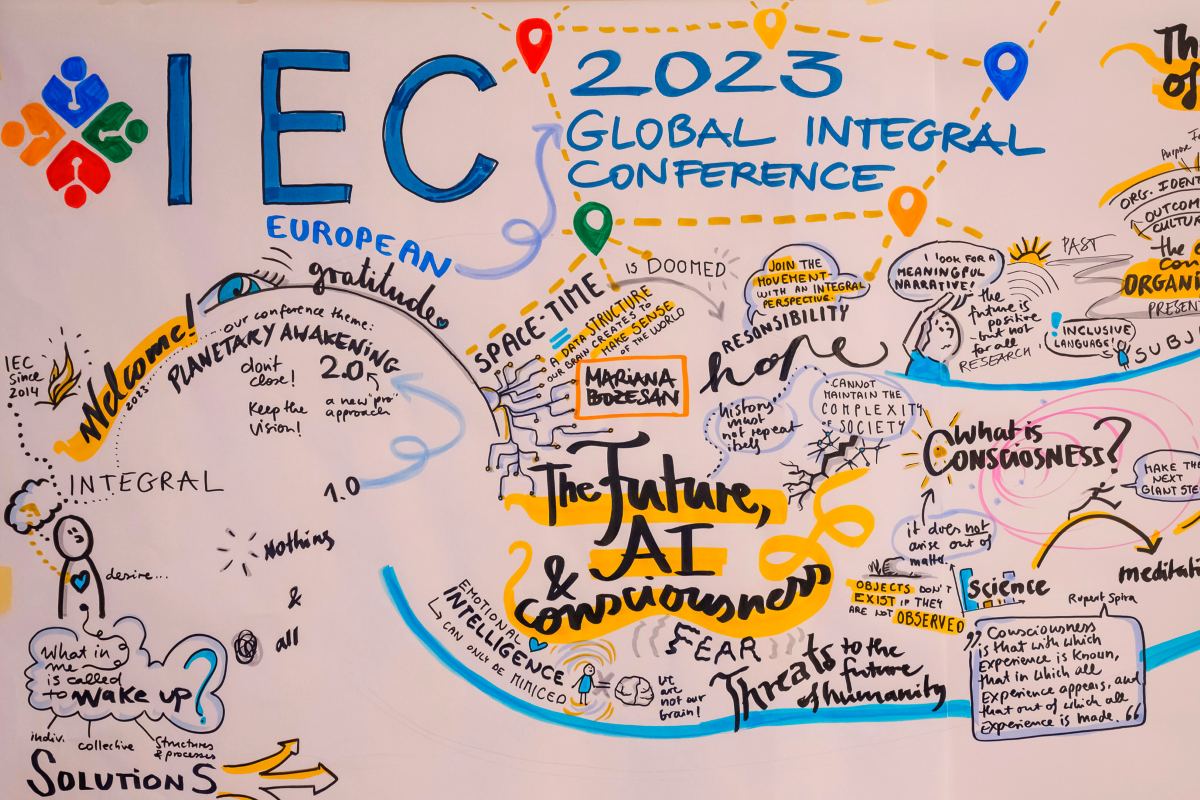 IEC
2023
GLOBAL INTEGRAL
CONFERENCE
EUROPEAN
IEC
Since
2014
Welcome!
2023
gratitude
our conference theme:
PLANETARY AWAKENING
2.0
don't
close!
Keep the
vision!
a new "pro"
approach
1.0
INTEGRAL
desire...
Nothing
&
all
What in
me
is called
to wake up?
indiv.
collective
Structures
& processes
SOLUTIONS
SPACE-TIME
IS DOOMED
=
A DATA STRUCTURE
OUR BRAIN CREATES TO
MAKE SENSE
OF THE WORLD
MARIANA
BOZESAN
JOIN THE
MOVEMENT
WITH AN INTEGRAL
PERSPECTIVE.
RESONSIBILITY
hope
history
must
not repeat
itself
CANNOT
MAINTAIN THE
COMPLEXITY
OF SOCIETY
The Future,
AI
& Consciousness
EMOTIONAL
INTELLIGENCE
CAN ONLY BE MIMICED
FEAR
we
are
not our
brain!
Threats to the
future
of humanity
I LOOK FOR A
MEANINGFUL
NARRATIVE!
the
future is
positive
- but not
for all
RESEARCH
PAST
INCLUSIVE
LANGUAGE!
SUBJ
What is
CONSCIOSNESS?
it does not
arise out of
matter.
OBJECTS DON'T
EXIST IF THEY
ARE NOT OBSERVED
science
MAKE TH
NEXT
GIANT STE
meditati
Rupert Spira
" Consciousness
is that with which
Experience is Known,
that in which all
Experience appears, and
that out of which all
experience is made. "
Th
of
Purpose
ORG. IDENT
OUTCOM
CULTU
the
ORGANI
PRESEN